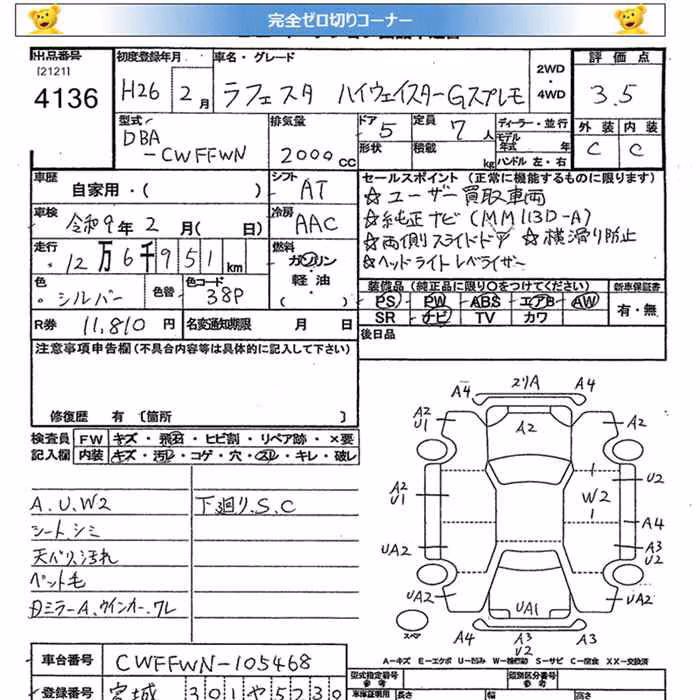 完全ゼロ切りコーナー
出品番号
[2121]
4136
初度登録年月
H26 2月
車名・グレード
ラフェスタ ハイウェイスターGスプレモ
2WD
・
4WD
評価点
3.5
外装 内装
C C
型式
DBA
-CWFFWN
排気量
2000cc
ドア 5
定員 7人
形状
積載 kg
ディーラー・並行
モデル年式 年
ハンドル 左・右
車歴
自家用・( )
シフト
AT
車検
令和9年2月( 日)
冷房
AAC
走行
12万6千951km
燃料
ガソリン
軽油
( )
色
シルバー
色替
色コード
38P
R券 11,810円
名変通知期限 月 日
セールスポイント (正常に機能するものに限ります)
☆ユーザー買取車両
☆純正ナビ(MM113D-A)
☆両側スライドドア ☆横滑り防止
☆ヘッドライトレベライザー
装備品 (純正品に限り○をつけてください)
新車保証書
PS PW ABS エアB AW
SR ナビ TV カワ
有・無
後日品
注意事項申告欄(不具合内容等は具体的に記入して下さい)
修復歴 有 [箇所 ]
検査員記入欄
FW キズ・飛石・ヒビ割・リペア跡・×要
内装 キズ・汚レ・コゲ・穴・スレ・キレ・破レ
A.U.W2
シート.シミ
天バリ.汚れ
ペット毛
日ミラーA.ウインカー.ワレ
下廻り.S.C
A4 2リA A4
A2
U1
A2
A2
A2
U1
U2
W2
A4
UA2
A3
U2
UA2
UA1
UA2
スペア
A4 A3
U2
A3
A=キズ E=エクボ U=凹み W=補修跡 S=サビ C=腐食 XX=交換済
車台番号
CWFFWN-105468
登録番号
宮城 301 や 5230
型式指定番号
類別区分番号
長さ
幅
高さ